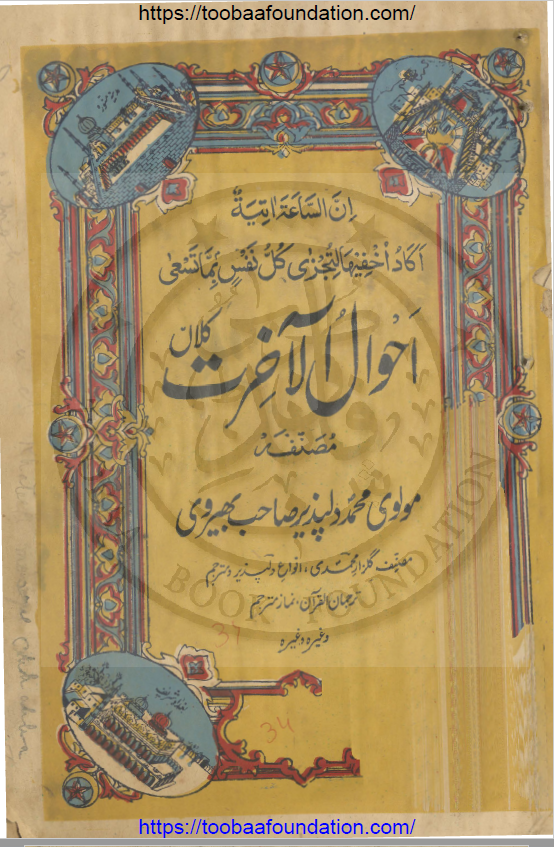 https://toobaafoundation.com/
مدینہ منورہ
اِنَّ السَّاعَةَ اٰتِيَةٌ
اَكَادُ اُخْفِيْهَا لِتُجْزٰى كُلُّ نَفْسٍ بِمَا تَسْعٰى
اَحْوَالُ الْآخِرَت کلاں
مُصَنِّفَہٗ
مولوی محمد دلپذیر صاحب بھیروی
مصنّف گلزار محمّدی، انواع دلپذیر و مترجم
ترجمان القرآن، نماز مترجم
وغیرہ وغیرہ
31
34
BOOK FOUNDATION
https://toobaafoundation.com/